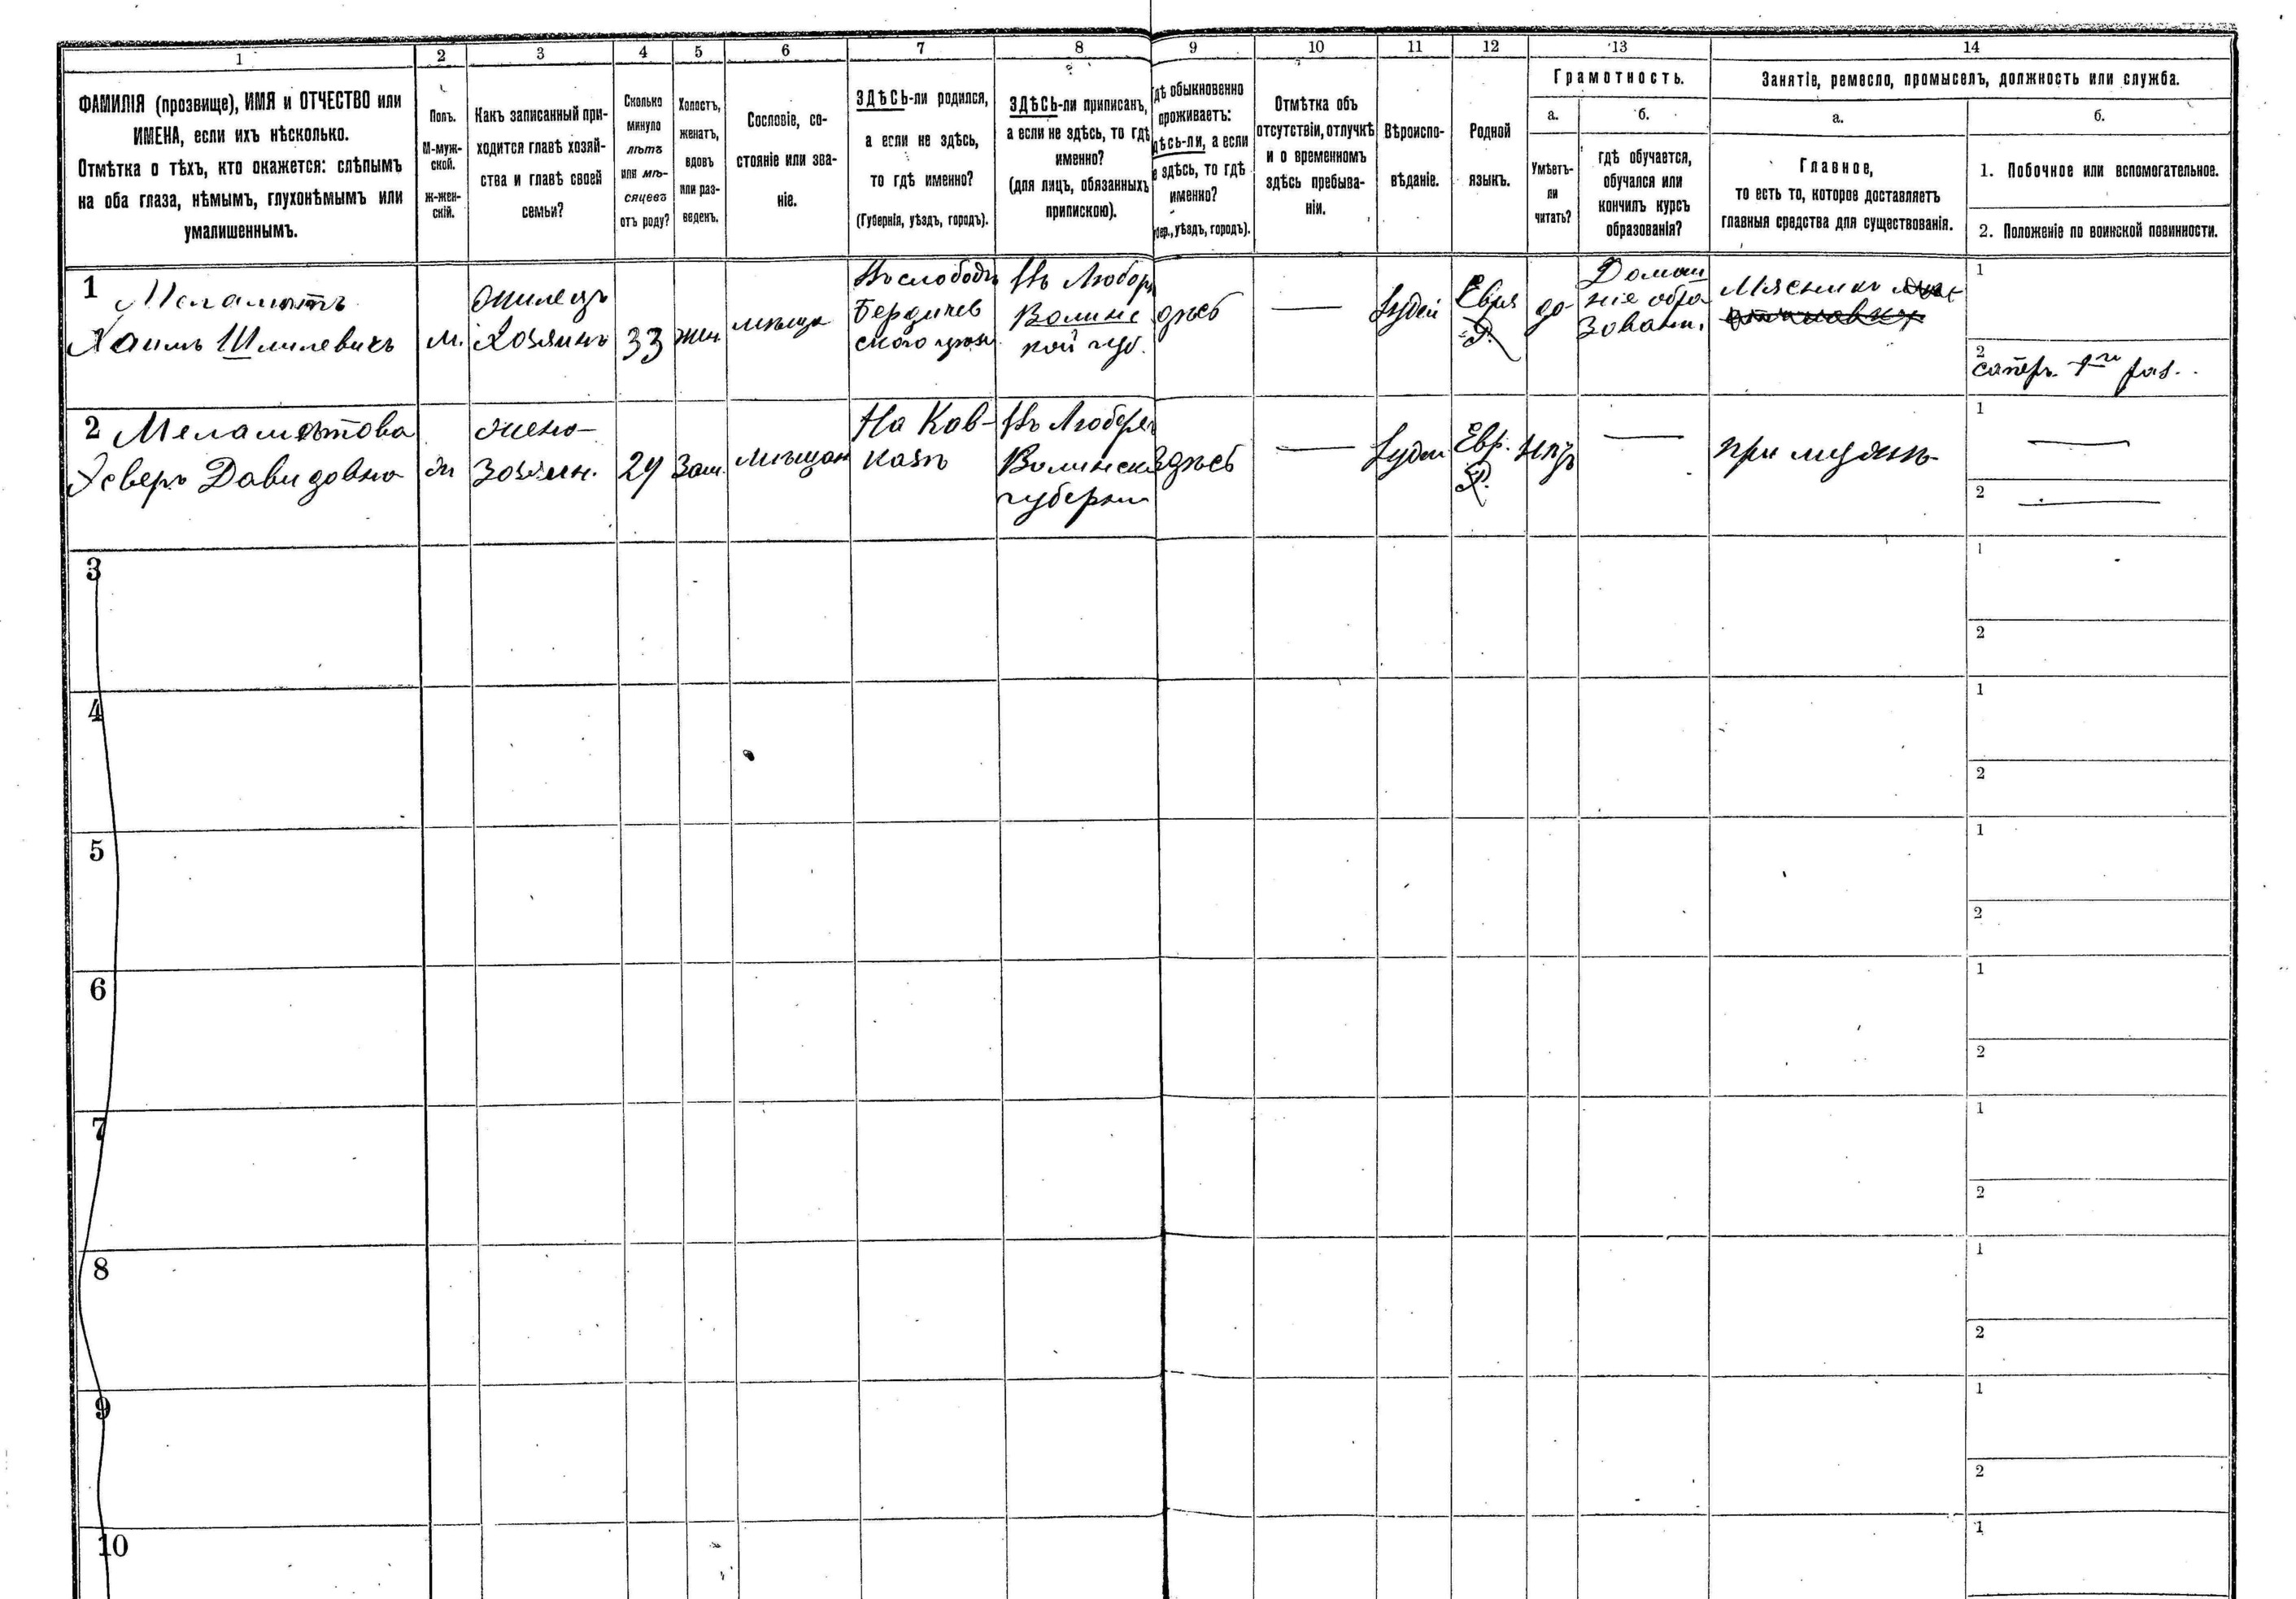 1
2
3
4
5
6
7
8
9
10
11
12
13
14
ФАМИЛІЯ (прозвище), ИМЯ и ОТЧЕСТВО или
ИМЕНА, если ихъ нѣсколько.
Отмѣтка о тѣхъ, кто окажется: слѣпымъ
на оба глаза, нѣмымъ, глухонѣмымъ или
умалишеннымъ.
Полъ.
М-муж-
ской.
ж-жен-
скій.
Какъ записанный при-
ходится главѣ хозяй-
ства и главѣ своей
семьи?
Сколько
минуло
лѣтъ
или мѣ-
сяцевъ
отъ роду?
Холостъ,
женатъ,
вдовъ
или раз-
веденъ.
Сословіе, со-
стояніе или зва-
ніе.
ЗДѢСЬ-ли родился,
а если не здѣсь,
то гдѣ именно?
(Губернія, уѣздъ, городъ).
ЗДѢСЬ-ли приписанъ,
а если не здѣсь, то гдѣ
именно?
(для лицъ, обязанныхъ
припискою).
дѣ обыкновенно
проживаетъ:
дѣсь-ли, а если
е здѣсь, то гдѣ
именно?
бер., уѣздъ, городъ).
Отмѣтка объ
отсутствіи, отлучкѣ
и о временномъ
здѣсь пребыва-
ніи.
Вѣроиспо-
вѣданіе.
Родной
языкъ.
Грамотность.
а.
б.
Умѣетъ-
ли
читать?
гдѣ обучается,
обучался или
кончилъ курсъ
образованія?
Занятіе, ремесло, промыселъ, должность или служба.
а.
б.
Главное,
то есть то, которое доставляетъ
главныя средства для существованія.
1. Побочное или вспомогательное.
2. Положеніе по воинской повинности.
1
Меламетъ
Хаимъ Шмилевичъ
м.
жилецъ
Хозяинъ
33
жен.
мѣща
Въ слободѣ
Бердичев
скаго уѣзд
Въ Любор
Волинс
кой губ.
дѣсь
—
Іудей
Евре
да
Домаш
ніе обра
зовани.
Мясникъ
1
2
2 Меламетова
Давидовна
ж
жено-
хозяин.
29
Зам.
Мѣщан
На Кав-
казѣ
Въ Любор
Волинской
губерни
Здѣсь
—
Іудей
Евр.
нѣтъ
—
при мужѣ
1
—
2
—
3
1
2
4
1
2
5
1
2
6
1
2
7
1
2
8
1
2
9
1
2
10
1